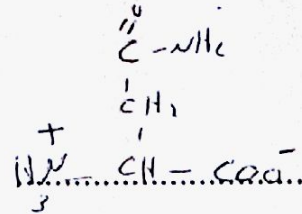 O
C - NH2
CH2
H3N+ - CH - COO-